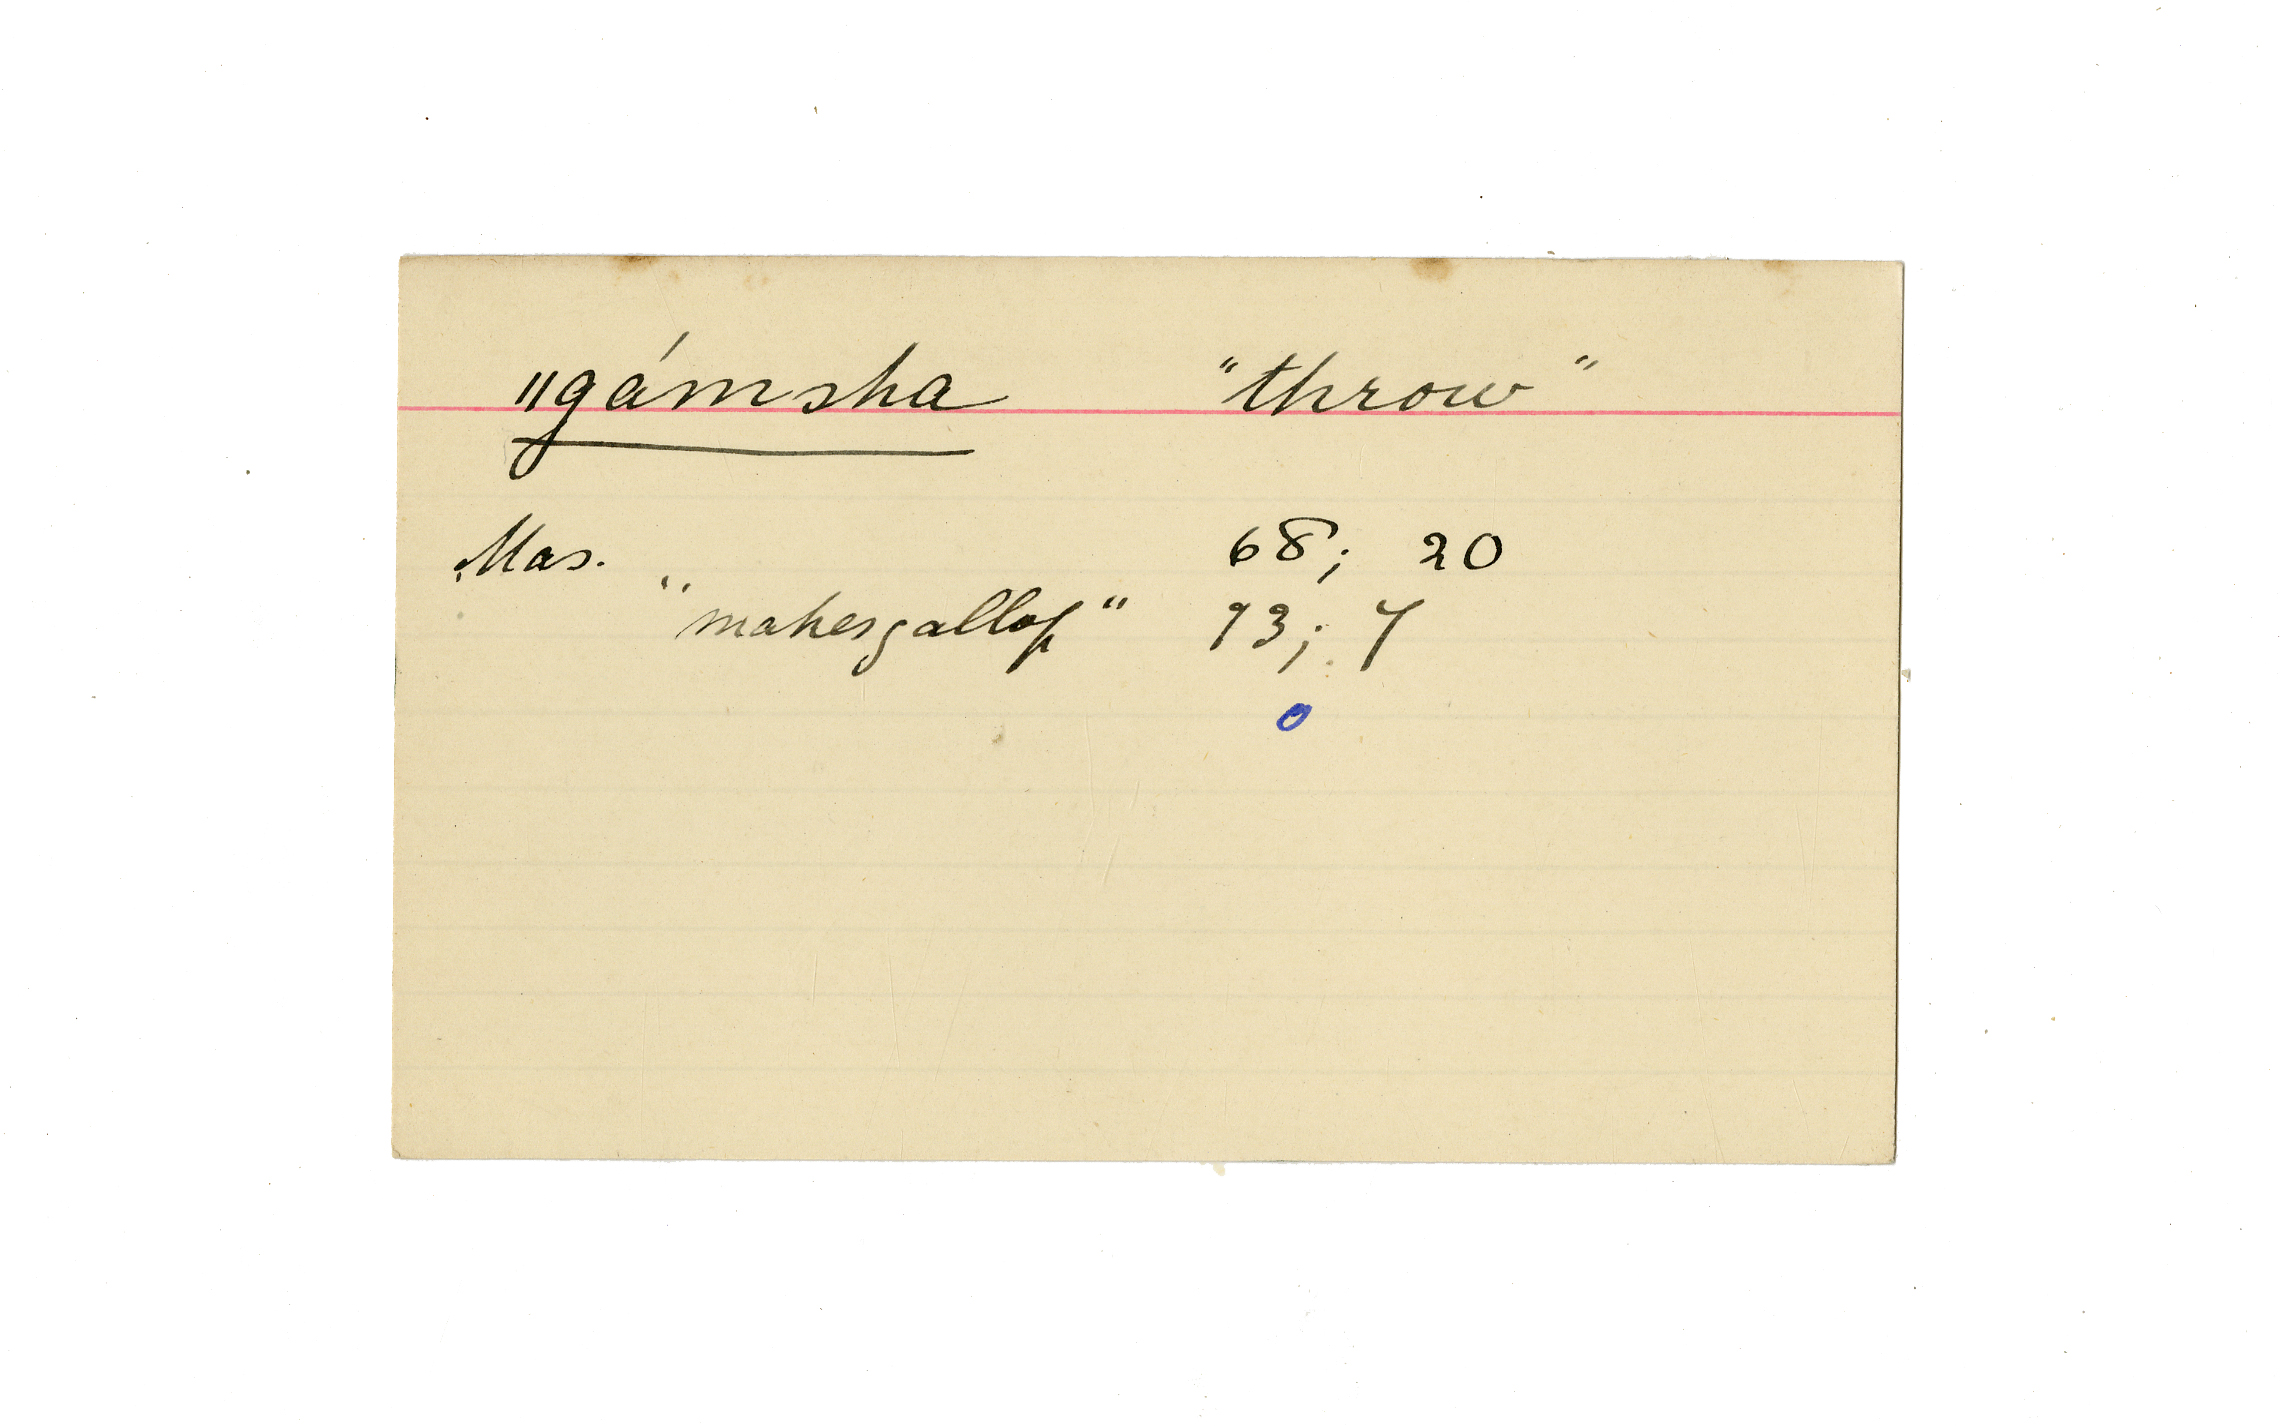 ǁgámsha "throw"
Mas. 68; 20
"makes gallop" 73; 7
o